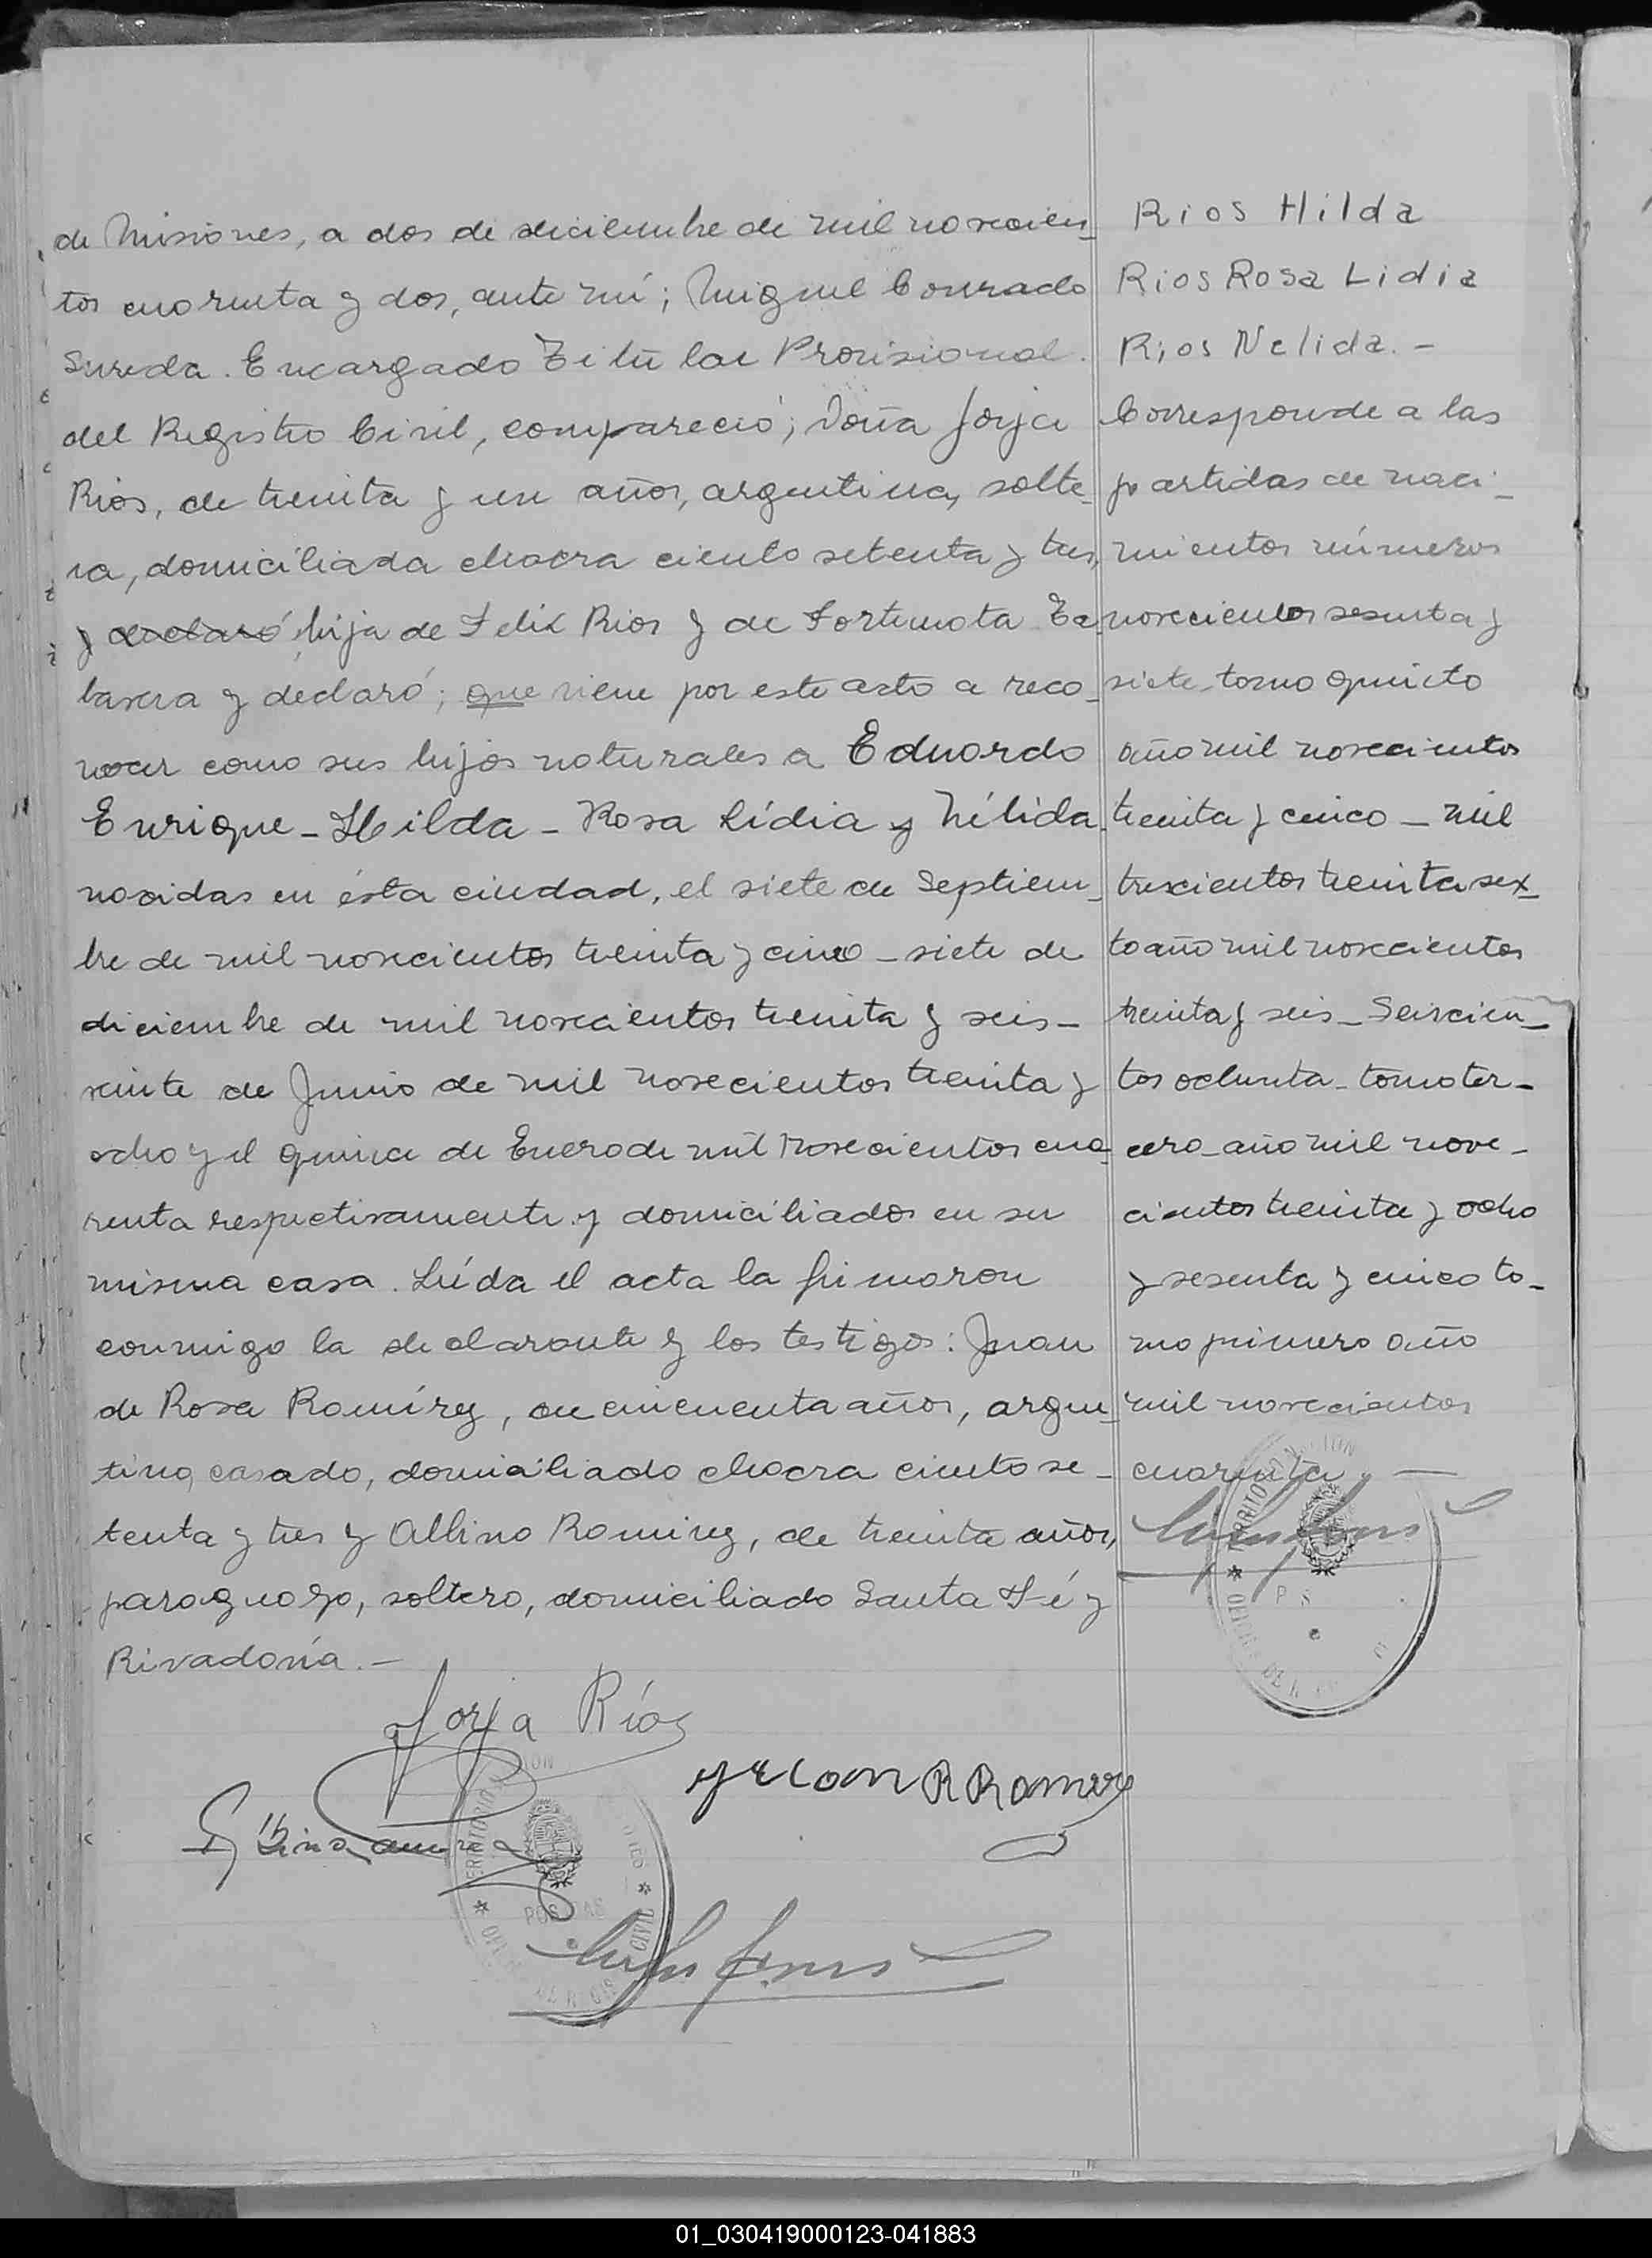 de Misiones, a dos de diciembre de mil novecien_
tos cuarenta y dos, ante mí; Miguel Conrado
Sureda. Encargado Titular Provisional.
del Registro Civil, compareció; Doña Jorja
Rios, de treinta y un años, argentina, solte_
ra, domiciliada chacra ciento setenta y tres,
y declaró, hija de Felix Rios y de Fortunata
y declaró; que viene por este acto a reco_
nocer como sus hijos naturales a Eduardo
Enrique - Hilda - Rosa Lídia y Nélida
nacidas en ésta ciudad, el siete de Septiem_
bre de mil novecientos treinta y cinco - siete de
diciembre de mil novecientos treinta y seis -
veinte de Junio de mil novecientos treinta y
ocho y el quince de Enero de mil novecientos cua_
renta respectivamente y domiciliados en su
misma casa. Leída el acta la firmaron
conmigo la declarante y los testigos: Juan
de Rosa Ramírez, de cincuenta años, argen_
tino, casado, domiciliado chacra ciento se_
tenta y tres y Albino Ramirez, de treinta años,
paraguayo, soltero, domiciliado Santa Fé y
Rivadavia. -
Rios Hilda
Rios Rosa Lidia
Rios Nelida. -
Corresponde a las
partidas de naci_
mientos números
novecientos sesenta y
siete - tomo quinto
año mil novecientos
treinta y cinco - mil
trescientos treinta sex_
to año mil novecientos
treinta y seis - Seiscien_
tos ochenta - tomo ter_
cero - año mil nove_
cientos treinta y ocho
y sesenta y cinco to_
mo primero año
mil novecientos
cuarenta. -
Jorja Ríos
R Ramirez
01_030419000123-041883